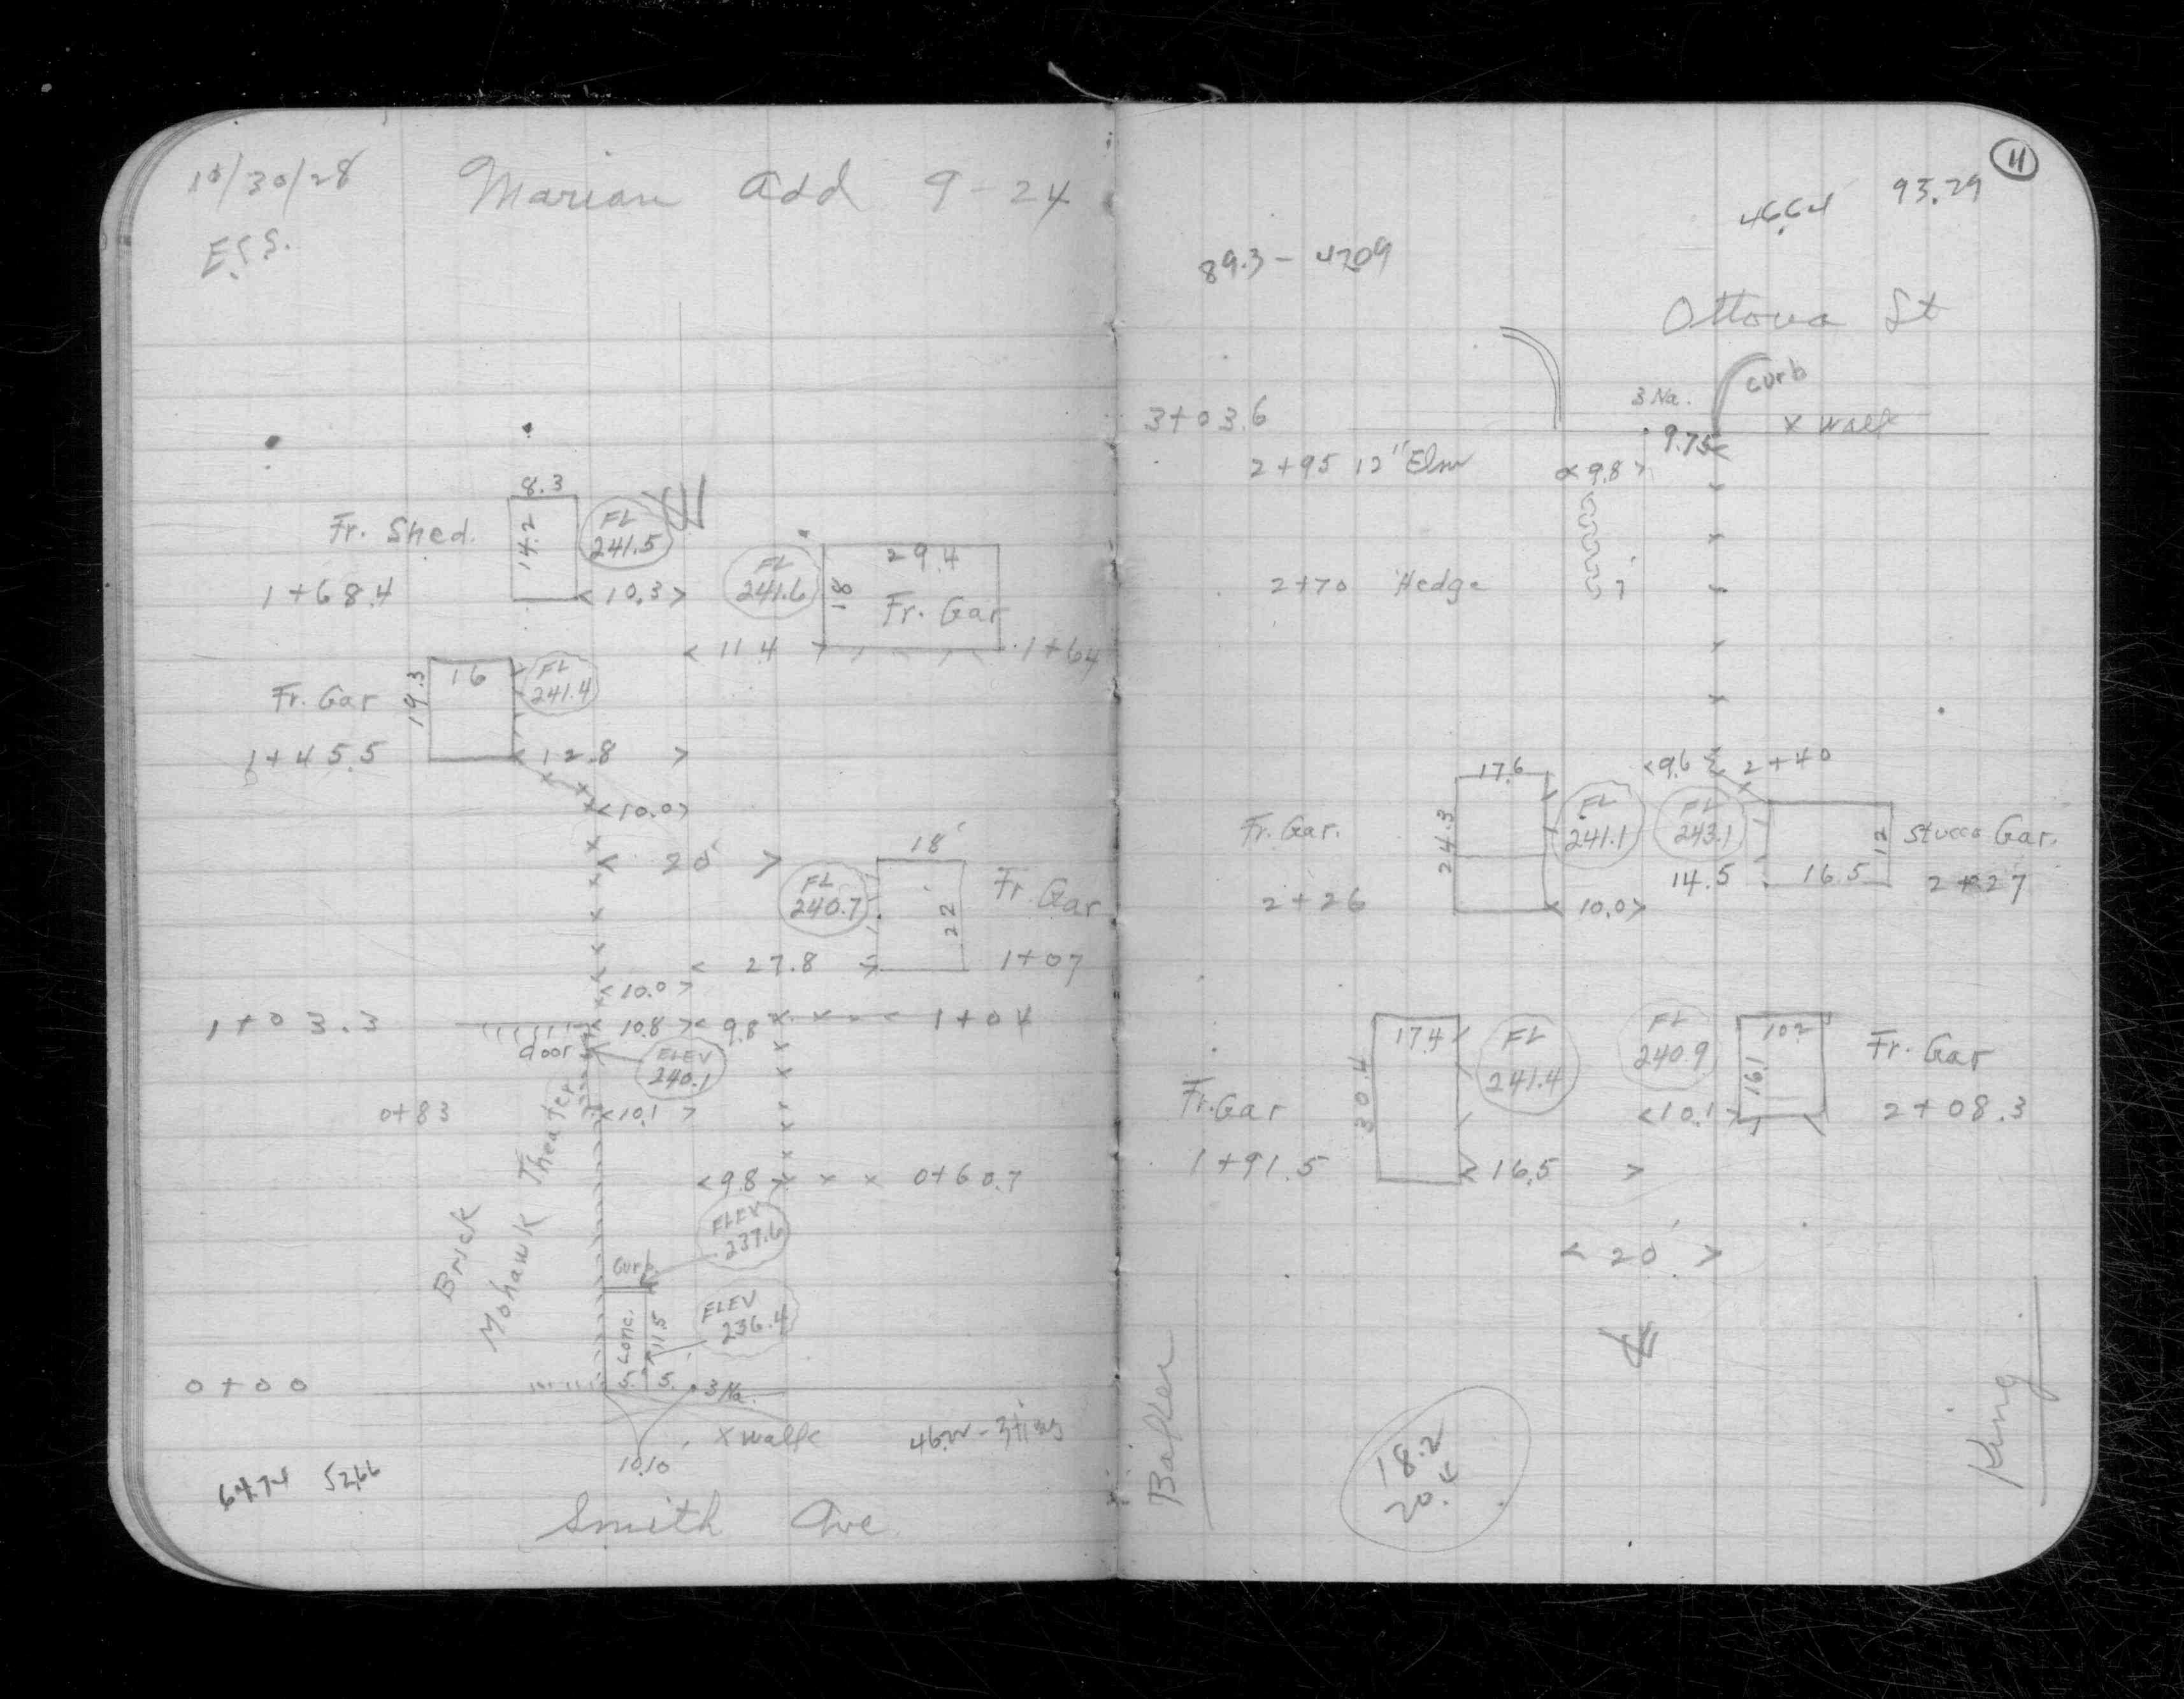 10/30/28 Marian Add 9-24
E.S.S.
8.3
Fr. Shed.
14.2
FL
241.5
1+68.4
<10.3>
FL
241.6
29.4
18
Fr. Gar
<11.4>
1+64
Fr. Gar
19.3
16
FL
241.4
1+45.5
<12.8>
<10.0>
<20'>
18'
FL
240.7
22
Fr. Gar
<27.8>
1+07
<10.0>
1+03.3
10.8
9.8
1+04
door
ELEV
240.1
0+83
<10.1>
Brick
Mohawk Theater
<9.8
0+60.7
ELEV
237.6
Curb
ELEV
236.4
Conc.
11.5
0+00
5. 5.
3 Na.
x walk
10.10
64.74 52.66
Smith Ave
11
46.64 93.29
89.3 - 4209
Ottowa St
curb
3 Na.
3+03.6
x walk
9.75
2+95 12" Elm
<9.8>
2+70 Hedge
<9.6
2+40
17.6
Fr. Gar.
24.3
FL
241.1
FL
243.1
12
Stucco Gar.
14.5
16.5
2+27
2+26
<10.0>
17.4
30.4
FL
241.4
FL
240.9
10.2
16.1
Fr. Gar
Fr. Gar
<10.1>
2+08.3
1+91.5
<16.5>
<20'>
Baker
18.2
King